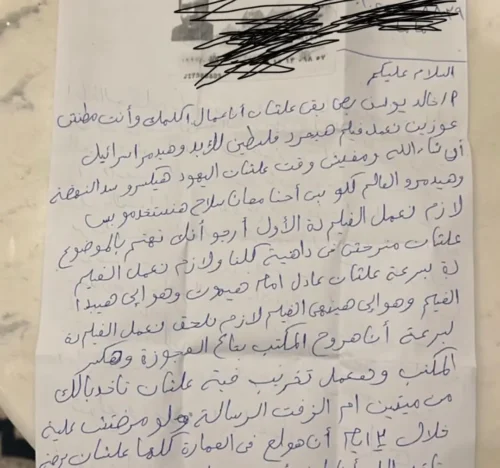 السلام عليكم
م/ خالد يوسف بص بقى علشان أنا عمال أكلمك وأنت مطنش
عوزين نعمل فيلم هيحرر فلسطين للأبد وهيدمر إسرائيل
إن شاء الله ومفيش وقت علشان اليهود هيكسرو سد النهضة
وهيدمرو العالم كلو بس أحنا معانا سلاح هنستخدمو بس
لازم نعمل الفيلم ده الأول أرجو أنك تهتم بالموضوع
علشان منرحش في داهية كلنا ولازم نعمل الفيلم
ده بسرعة علشان عادل امام هيموت وهو إلي هيبدأ
الفيلم وهو إلي هينهي الفيلم لازم نلحق نعمل الفيلم ده
بسرعة أنا هروح المكتب بتاع العجوزة وهكسر
المكتب وهعمل تخريب فيه علشان تاخد بالك
من ميتين ام الزفت الرسالة ولو مردتش عليه
خلال ١٢ يوم أنا هولع في العمارة كلها علشان